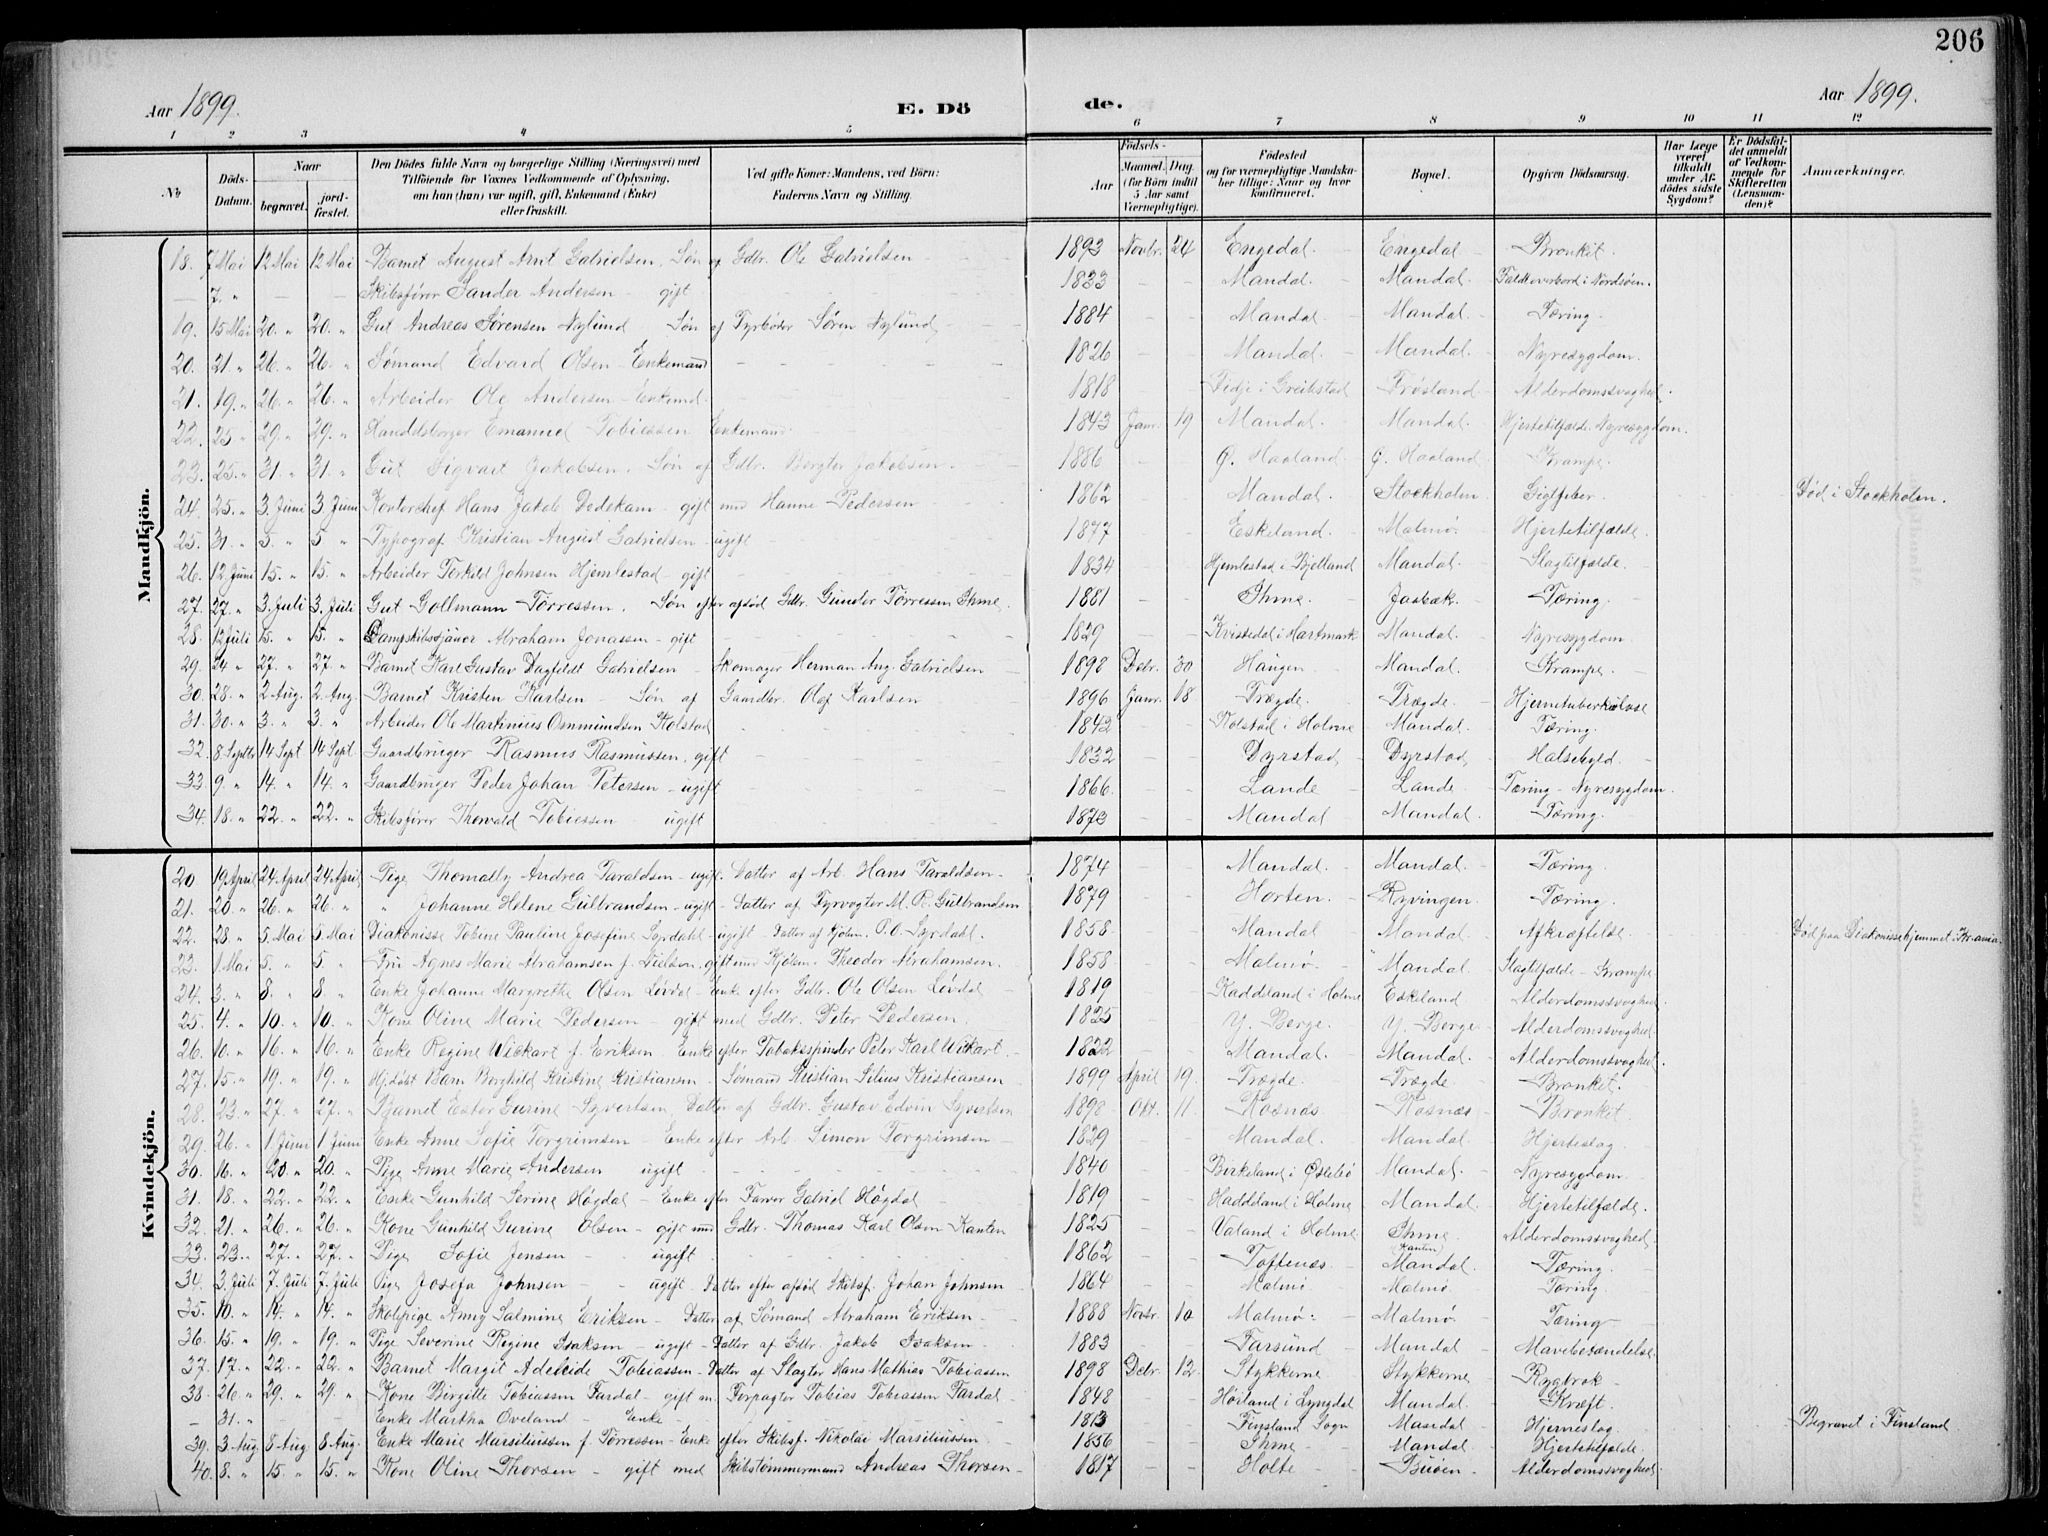 206
Aar 1899. E. Dö de. Aar 1899.
1 2 3 4 5 6 7 8 9 10 11 12
No
Döds-Datum.
Naar
begravet.
jord-fæstet.
Den Dödes fulde Navn og borgerlige Stilling (Næringsvei) med Tilföiende for Voxnes Vedkommende af Oplysning, om han (hun) var ugift, gift, Enkemand (Enke) eller fraskilt.
Ved gifte Koner: Mandens, ved Börn: Faderens Navn og Stilling.
Födsels-
Aar
Maaned. Dag.
(for Börn indtil 5 Aar samt Værnepligtige).
Födested og for værnepligtige Mandskaber tillige: Naar og hvor konfirmeret.
Bopæl.
Opgiven Dödsaarsag.
Har Læge været tilkaldt under Afdödes sidste Sygdom?
Er Dödsfaldet anmeldt af Vedkommende for Skifteretten (Lensmanden)?
Anmærkninger.
Mandkjön.
18. 7 Mai 12 Mai 12 Mai Barnet August Arnt Gabrielsen. Søn af Gdbr. Ole Gabrielsen 1893 Novbr. 24 Engedal. Engedal Bronkit.
— 7. " — — Skibsfører Sander Andersen - gift 1833 Mandal. Mandal. Faldt overbord i Nordsøen.
19. 15 Mai 20. " 20. " Gut Andreas Sørensen Nylund Søn af Fyrbøder Søren Nylund, 1884 Mandal. Mandal. Tæring.
20. 21 " 26. " 26. " Sømand Edvard Olsen - Enkemand 1826 Mandal. Mandal. Nyresygdom.
21. 19 " 26. " 26. " Arbeider Ole Andersen - Enkemd. 1818 Fidje i Greibstad Frøsland Alderdomssvaghed.
22. 25 " 29. " 29. " Handelsborger Emanuel Tobiassen Enkemand. 1843 Janr. 19 Mandal. Mandal. Hjertetilfælde. Nyresygdom.
23. 25. " 31. " 31. " Gut Sigvart Jakobsen. Søn af Gdbr. Bergter Jakobsen. 1886 Ø. Haaland Ø. Haaland Krampe.
24. 25. " 3. Juni 3. Juni Kontorchef Hans Jakob Dedekam - gift med Hanne Pedersen 1862 Mandal. Stockholm. Gigtfeber. Død i Stockholm.
25. 31. " 5. " 5 " Typograf Kristian August Gabrielsen - ugift 1877 Eskeland. Malmø. Hjertetilfælde.
26. 12 Juni 15. " 15. " Arbeider Terkild Johnsen Hjemlestad - gift 1834 Hjemlestad i Bjelland Mandal. Slagtilfælde.
27. 27. " 3. Juli 3. Juli Gut Gollmann Tørressen. Søn efter afdød Gdbr. Gunder Tørressen Ihme. 1881 Ihme. Jaabæk. Tæring.
28. 12 Juli 15. " 15. " Dampskibssjauer Abraham Jonassen - gift 1829 Kvistedal i Hartmark Mandal. Nyresygdom
29. 24 " 27. " 27. " Barnet Karl Gustav Dagfeldt Gabrielsen - Skomager Herman Aug. Gabrielsen 1898 Debr. 30 Haugen Mandal. Krampe.
30. 28. " 2 Aug. 2 Aug. Barnet Kristen Karlsen - Søn af Gaardbr. Olaf Karlsen 1896 Janr. 18 Trægde. Trægde. Hjernetuberkulose
31. 30. " 3. " 3. " Arbeider Ole Martinius Osmundsen Kolstad 1842 Kolstad i Holme Mandal. Tæring.
32. 8 Septbr 14 Sept. 14 Sept. Gaardbruger Rasmus Rasmussen. gift 1832 Dyrstad, Dyrstad, Halsebyld.
33. 9 " 14. " 14. " Gaardbruger Peder Johan Petersen - ugift 1866 Lande Lande. Tæring - Nyresygdom.
34. 18. " 22. " 22. " Skibsfører Thorvald Tobiassen ugift 1873 Mandal Mandal. Tæring.
Kvindekjön.
20 19 April 24 April 24 April Pige Thomally Andrea Taraldsen - ugift. Datter af Arb. Hans Taraldsen. 1874 Mandal. Mandal. Tæring.
21. 20. " 26. " 26. " " Johanne Helene Gulbrandsen - ugift - Datter af Fyrvogter M. P. Gulbrandsen 1879 Horten. Ryvingen. Tæring.
22. 28 " 5. Mai 5. Mai Diakonisse Tobine Pauline Josefine Lyrdahl - ugift - Datter af Kjøbm. P. O. Lyrdahl. 1858. Mandal Mandal. Afkræftelse. Død paa Diakonissehjemmet. Kr.ania.
23. 1 Mai 5. " 5. " Fru Agnes Marie Abrahamsen f. Nielsen, gift med Kjøbm. Theodor Abrahamsen. 1858 Malmø. Mandal. Slagtilfælde - Krampe.
24. 3. " 8. " 8. " Enke Johanne Margrethe Olsen Løvdal - Enke efter Gdbr. Ole Olsen Løvdal 1819 Haddeland i Holme Eskeland Alderdomssvaghed.
25. 4. " 10. " 10. " Kone Oline Marie Pedersen - gift med Gdbr. Peter Pedersen. 1825 Y. Berge. Y. Berge. Alderdomssvaghed.
26. 10. " 16. " 16. " Enke Regine Wickart f. Eriksen. Enke efter Tobaksspinder Peter Karl Wickart. 1822 Mandal. Mandal. Alderdomssvaghed.
27. 15. " 19. " 19. " Hj.døbt Barn Borghild Kristine Kristiansen. Sømand Kristian Silius Kristiansen 1899 April 19. Trægde. Trægde Bronket.
28. 23. " 27. " 27. " Barnet Ester Gurine Syvertsen. Datter af Gdbr. Gustav Edvin Syvertsen 1898. Okt. 11. Rosnæs Rosnæs Bronket.
29. 26. " 1 Juni 1 Juni Enke Anne Sofie Torgrimsen - Enke efter Arb. Simon Torgrimsen 1829 Mandal. Mandal. Hjerteslag.
30. 16. " 20. " 20. " Pige Anne Marie Andersen ugift 1840 Birkeland i Øslebø Mandal. Nyresygdom.
31. 18. " 22. " 22. " Enke Gunhild Serine Høgdal - Enke efter Farver Gabriel Høgdal 1819 Haddeland i Holme Mandal. Hjertetilfælde.
32. 21. " 26. " 26. " Kone Gunhild Gurine Olsen - gift med Gdbr. Thomas Karl Olsen Kanten 1825 Valand i Holme Ihme (Kanten) Alderdomssvaghed.
33. 23. " 27. " 27. " Pige Sofie Jensen ugift. 1862 Toftenæs. Mandal. Tæring.
34. 3 Juli 7. Juli 7. Juli Pige Josefa Johnsen ugift. Datter efter afdød Skibsf. Johan Johnsen 1864 Malmø Malmø. Tæring.
35. 10. " 14. " 14. " Skolepige Anny Salmine Eriksen - Datter af Sømand Abraham Eriksen. 1888 Novbr. 10 Malmø. Malmø. Tæring
36. 15. " 19. " 19. " Pige Severine Regine Isaksen - ugift - Datter af Gdbr. Jakob Isaksen. 1883 Farsund Mandal Mavebetændelse
37. 17. " 22. " 22. " Barnet Margit Adeleide Tobiassen - Datter af Slagter Hans Mathias Tobiassen 1898 Debr. 12 Stykkerne Stykkerne Rygbrok
38. 26. " 29. " 29. " Kone Birgitte Tobiassen Fardal - gift m. Forpagter Tobias Tobiassen Fardal 1848 Hørland i Lyngdal Mandal. Kræft.
— 31. " Enke Martha Øveland - Enke 1813 Finsland Sogn Mandal Hjerneslag. Begravet i Finsland
39. 3 Aug. 8 Aug. 8 Aug. Enke Marie Marsiliussen f. Tørressen - Enke efter Skibsf. Nikolai Marsiliussen. 1856 Ihme Mandal. Hjertetilfælde.
40. 8. " 15. " 15. " Kone Oline Thorsen - gift med Skibstømmermand Andreas Thorsen 1817 Holte Buøen. Alderdomssvaghed.